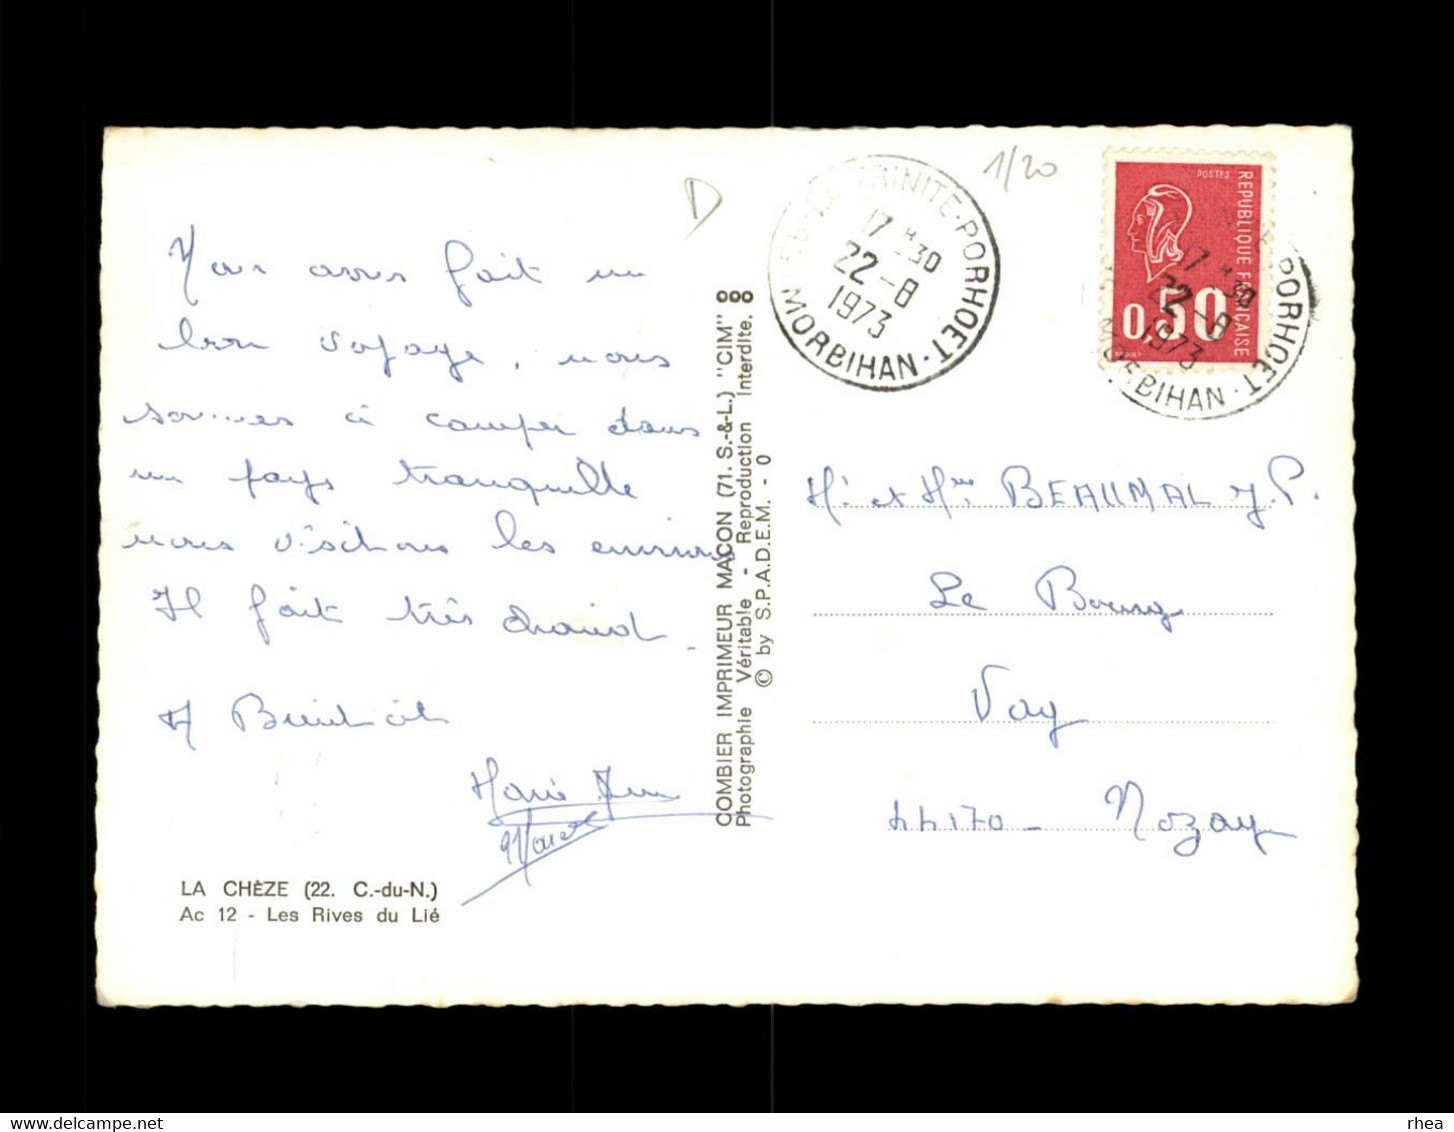 D
1/20
56 - LA TRINITE-PORHOET
17 H 30
22-8
1973
MORBIHAN
POSTES
REPUBLIQUE FRANÇAISE
0,50
PORHOET
17 H 30
22-8
1973
MORBIHAN
Nous avons fait un
bon voyage, nous
sommes à camper dans
un pays tranquille
nous visitons les environs
Il fait très chaud.
A Bientôt
Marie
Marcel
LA CHÈZE (22. C.-du-N.)
Ac 12 - Les Rives du Lié
COMBIER IMPRIMEUR MACON (71. S.-&-L.) "CIM" ooo
Photographie Véritable - Reproduction Interdite.
© by S.P.A.D.E.M. - 0
M. et Mme BEAUMAL J.P.
Le Bourg
Vay
44170 - Nozay
rhea